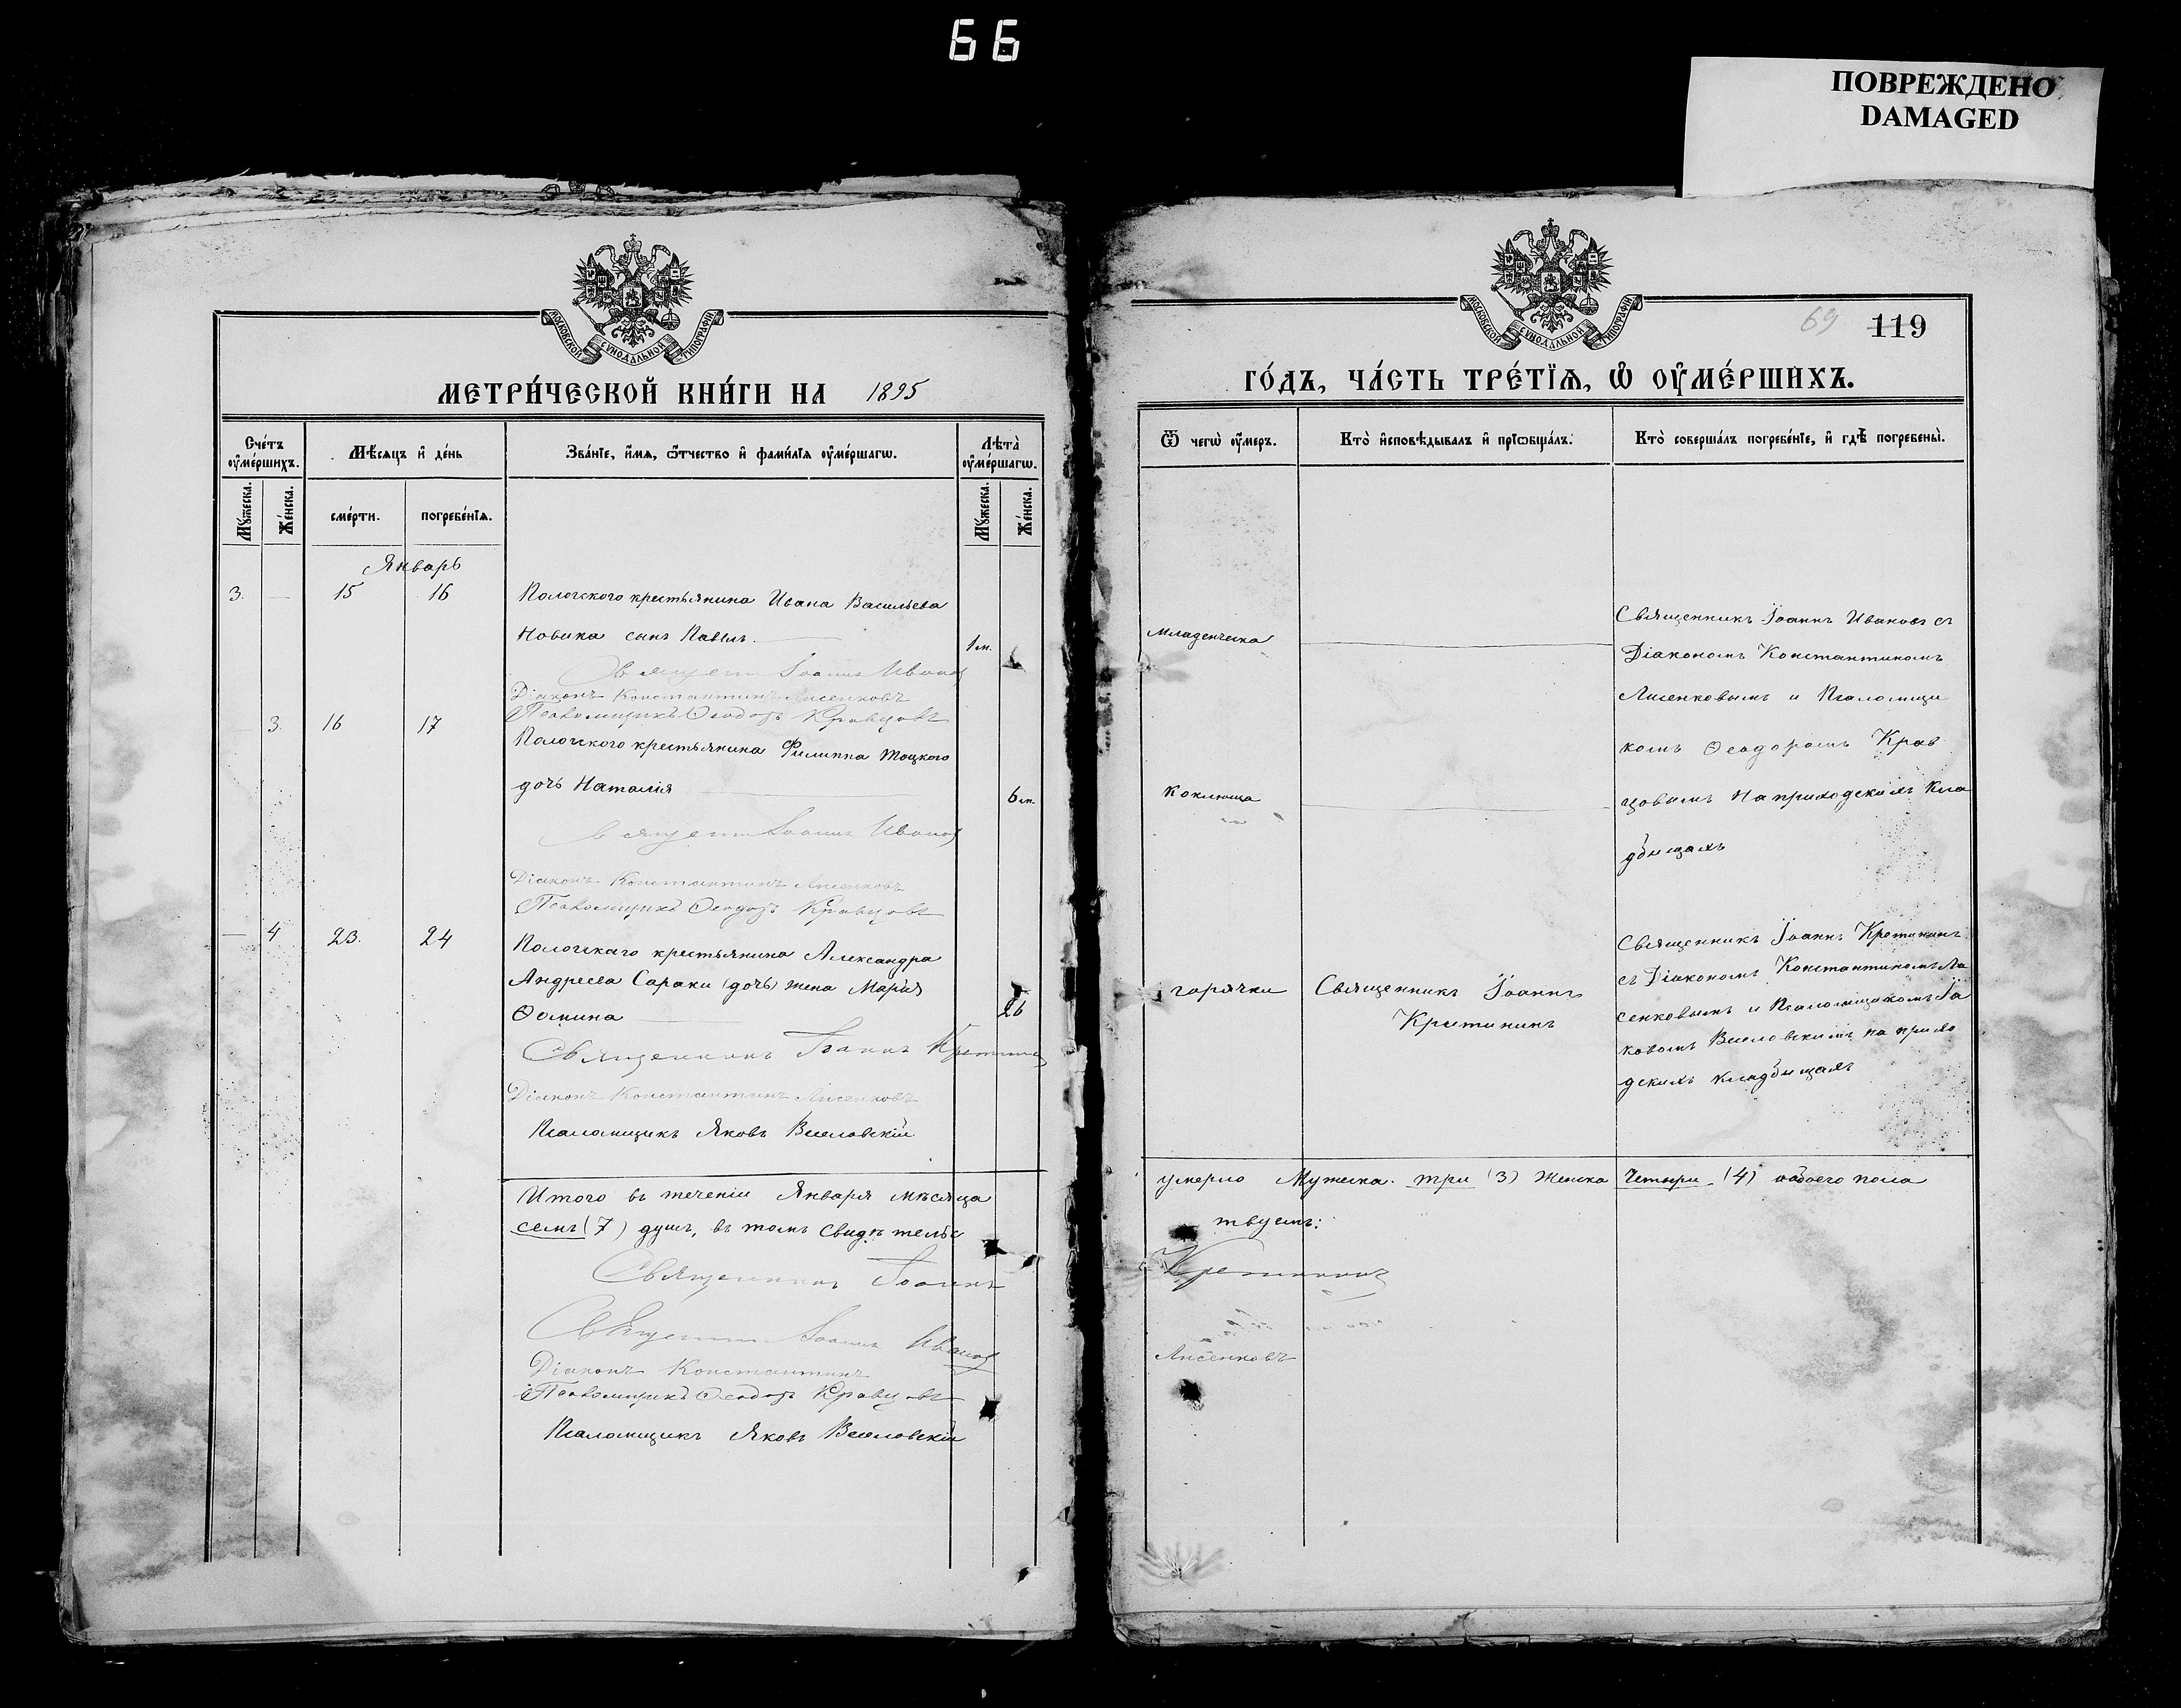 66
ПОВРЕЖДЕНО
DAMAGED
МОСКОВСКОЙ СѴНОДАЛЬНОЙ ТИПОГРАФІИ
МЕТРИ́ЧЕСКОЙ КНИ́ГИ НА 1895
Сче́тъ ᲂу҆ме́ршихъ.
Мѣ́сяцъ и҆ де́нь
Зва́нїе, и҆́мя, ѻ҆́тчество и҆ фами́лїя ᲂу҆ме́ршагѡ.
Лѣта̀ ᲂу҆ме́ршагѡ.
Мꙋ́жеска.
Же́нска.
сме́рти.
погребе́нїѧ.
Мꙋ́жеска.
Же́нска.
Январь
3. — 15 16 Пологскаго крестьянина Ивана Васильева
Новика сынъ Павелъ. 1 м.
Іоаннъ Ивановъ
Діаконъ Константинъ Лисенковъ
Псаломщикъ Ѳеодоръ Кравцовъ
— 3. 16 17 Пологского крестьянина Филиппа Тоцкого
дочь Наталія 6 м.
Іоаннъ Ивановъ
Діаконъ Константинъ Лисенковъ
Псаломщикъ Ѳеодоръ Кравцовъ
— 4 23. 24 Пологскаго крестьянина Александра
Андреева Сараки (дочь) жена Марія
Ѳомина 26
Священникъ Іоаннъ Кретининъ
Діаконъ Константинъ Лисенковъ
Псаломщикъ Яковъ Веселовскій
Итого въ теченіи Января мѣсяца
семь (7) душъ, въ томъ свидѣтельс
Священникъ Іоаннъ
Священникъ Іоаннъ Ивановъ
Діаконъ Константинъ
Псаломщикъ Ѳеодоръ Кравцовъ
Псаломщикъ Яковъ Веселовскій
МОСКОВСКОЙ СѴНОДАЛЬНОЙ ТИПОГРАФІИ
69 119
ГО́ДЪ, ЧА́СТЬ ТРЕ́ТЇѦ, Ѡ҆ ОУ҆МЕ́РШИХЪ.
Ѿ чегѡ̀ ᲂу҆́меръ.
Кто̀ и҆сповѣ́дывалъ и҆ прїѡбща́лъ.
Кто̀ соверша́лъ погребе́нїе, и҆ гдѣ̀ погребены̀.
младенческа
Священникъ Іоаннъ Ивановъ съ
Діакономъ Константиномъ
Лисенковымъ и Псаломщи
комъ Ѳеодоромъ Крав
коклюша
цовымъ на приходскихъ кла
дбищахъ
горячки
Священникъ Іоаннъ
Кретининъ
Священникъ Іоаннъ Кретининъ
съ Діакономъ Константиномъ Ли
сенковымъ и Псаломщикомъ Іа
ковомъ Веселовскимъ на прихо
дскихъ кладбищахъ
умерло Мужеска. три (3) Женска Четыри (4) обоего пола
твуемъ:
Кретининъ
Лисенковъ